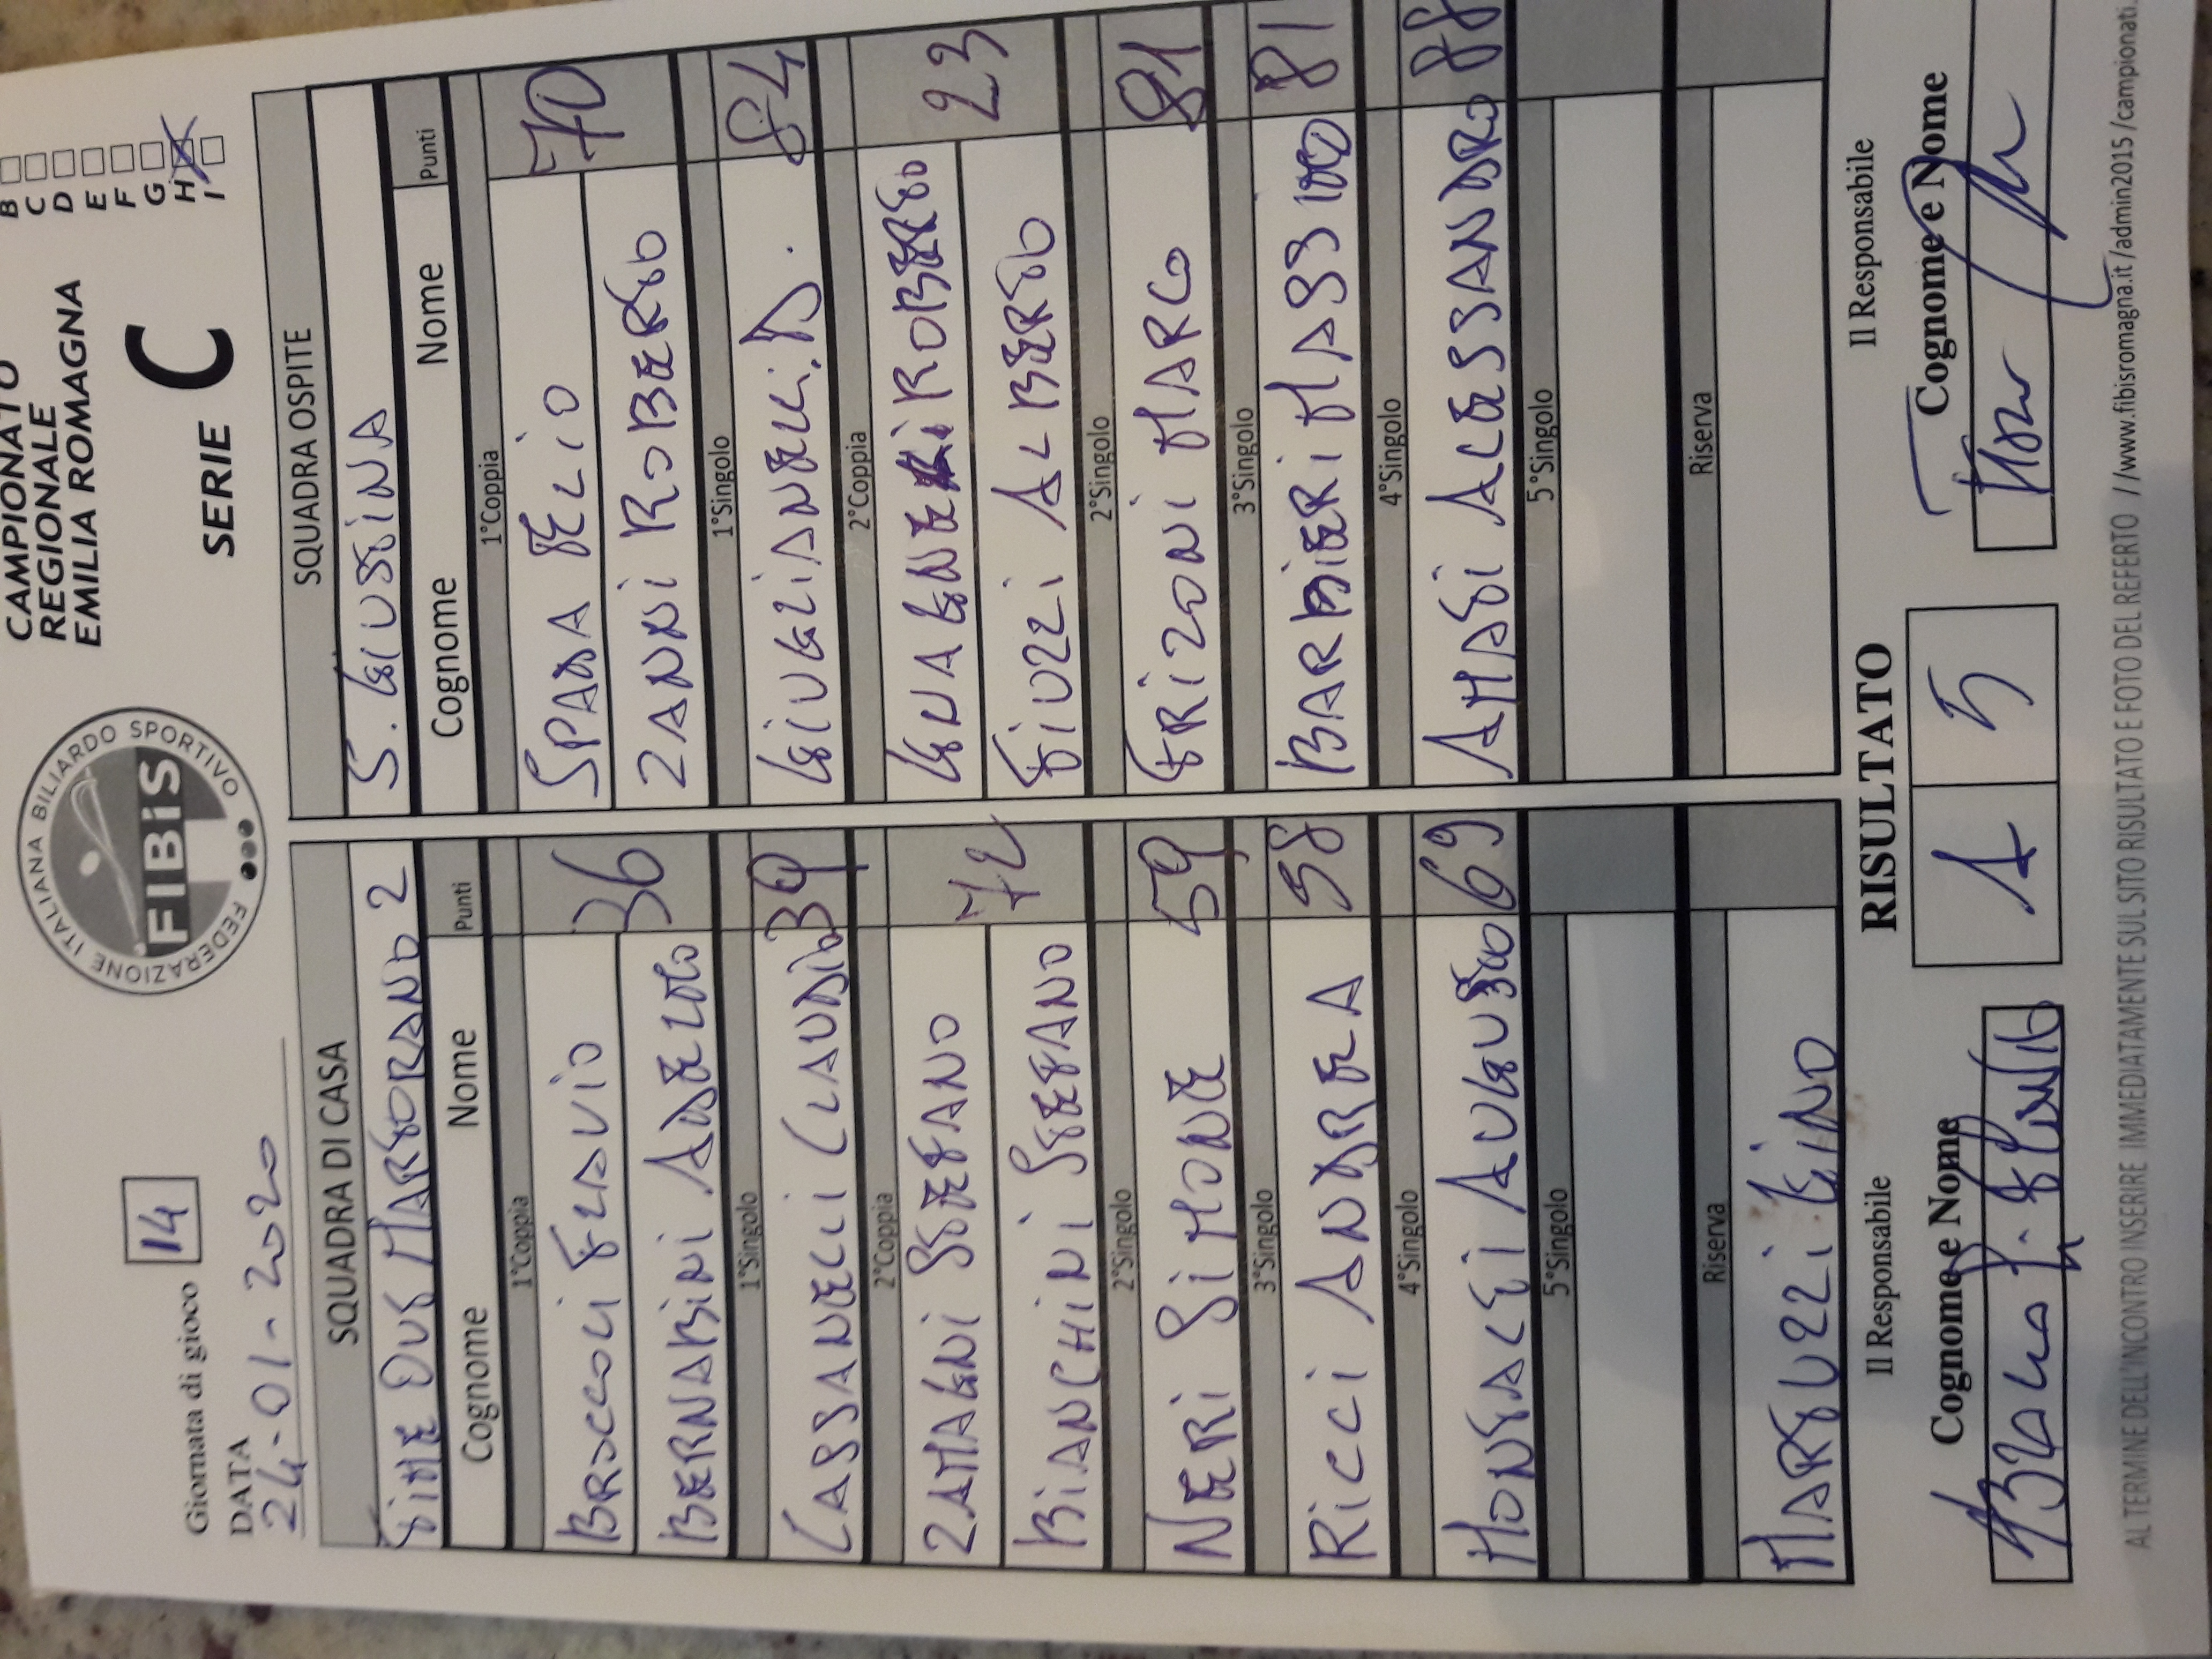 CAMPIONATO
REGIONALE
EMILIA ROMAGNA
SERIE C
B
C
D
E
F
G
H
I
FEDERAZIONE ITALIANA BILIARDO SPORTIVO
FIBiS
Giornata di gioco 14
DATA
24-01-2020
SQUADRA DI CASA
TIME OUT MARTORANO 2
Cognome Nome Punti
1°Coppia
BROCCOLI FLAVIO 36
BERNABINI ADELMO
1°Singolo
CASSANELLI CLAUDIO 39
2°Coppia
ZAMAGNI STEFANO 72
BIANCHINI STEFANO
2°Singolo
NERI SIMONE 59
3°Singolo
RICCI ANDREA 58
4°Singolo
MONTALTI AUGUSTO 69
5°Singolo
Riserva
MARTUZZI GINO
SQUADRA OSPITE
S. GIUSTINA
Cognome Nome Punti
1°Coppia
SPADA ELIO 70
ZANNI ROBERTO
1°Singolo
GIUGLIANELLI D. 84
2°Coppia
GUAGNELI ROBERTO 23
FIUZZI ALBERTO
2°Singolo
FRIZONI MARCO 91
3°Singolo
BARBIERI MASSIMO 81
4°Singolo
AMATI ALESSANDRO 88
5°Singolo
Riserva
RISULTATO
1 5
Il Responsabile
Cognome e Nome
Il Responsabile
Cognome e Nome
AL TERMINE DELL'INCONTRO INSERIRE IMMEDIATAMENTE SUL SITO RISULTATO E FOTO DEL REFERTO //www.fibisromagna.it/admin2015/campionati.